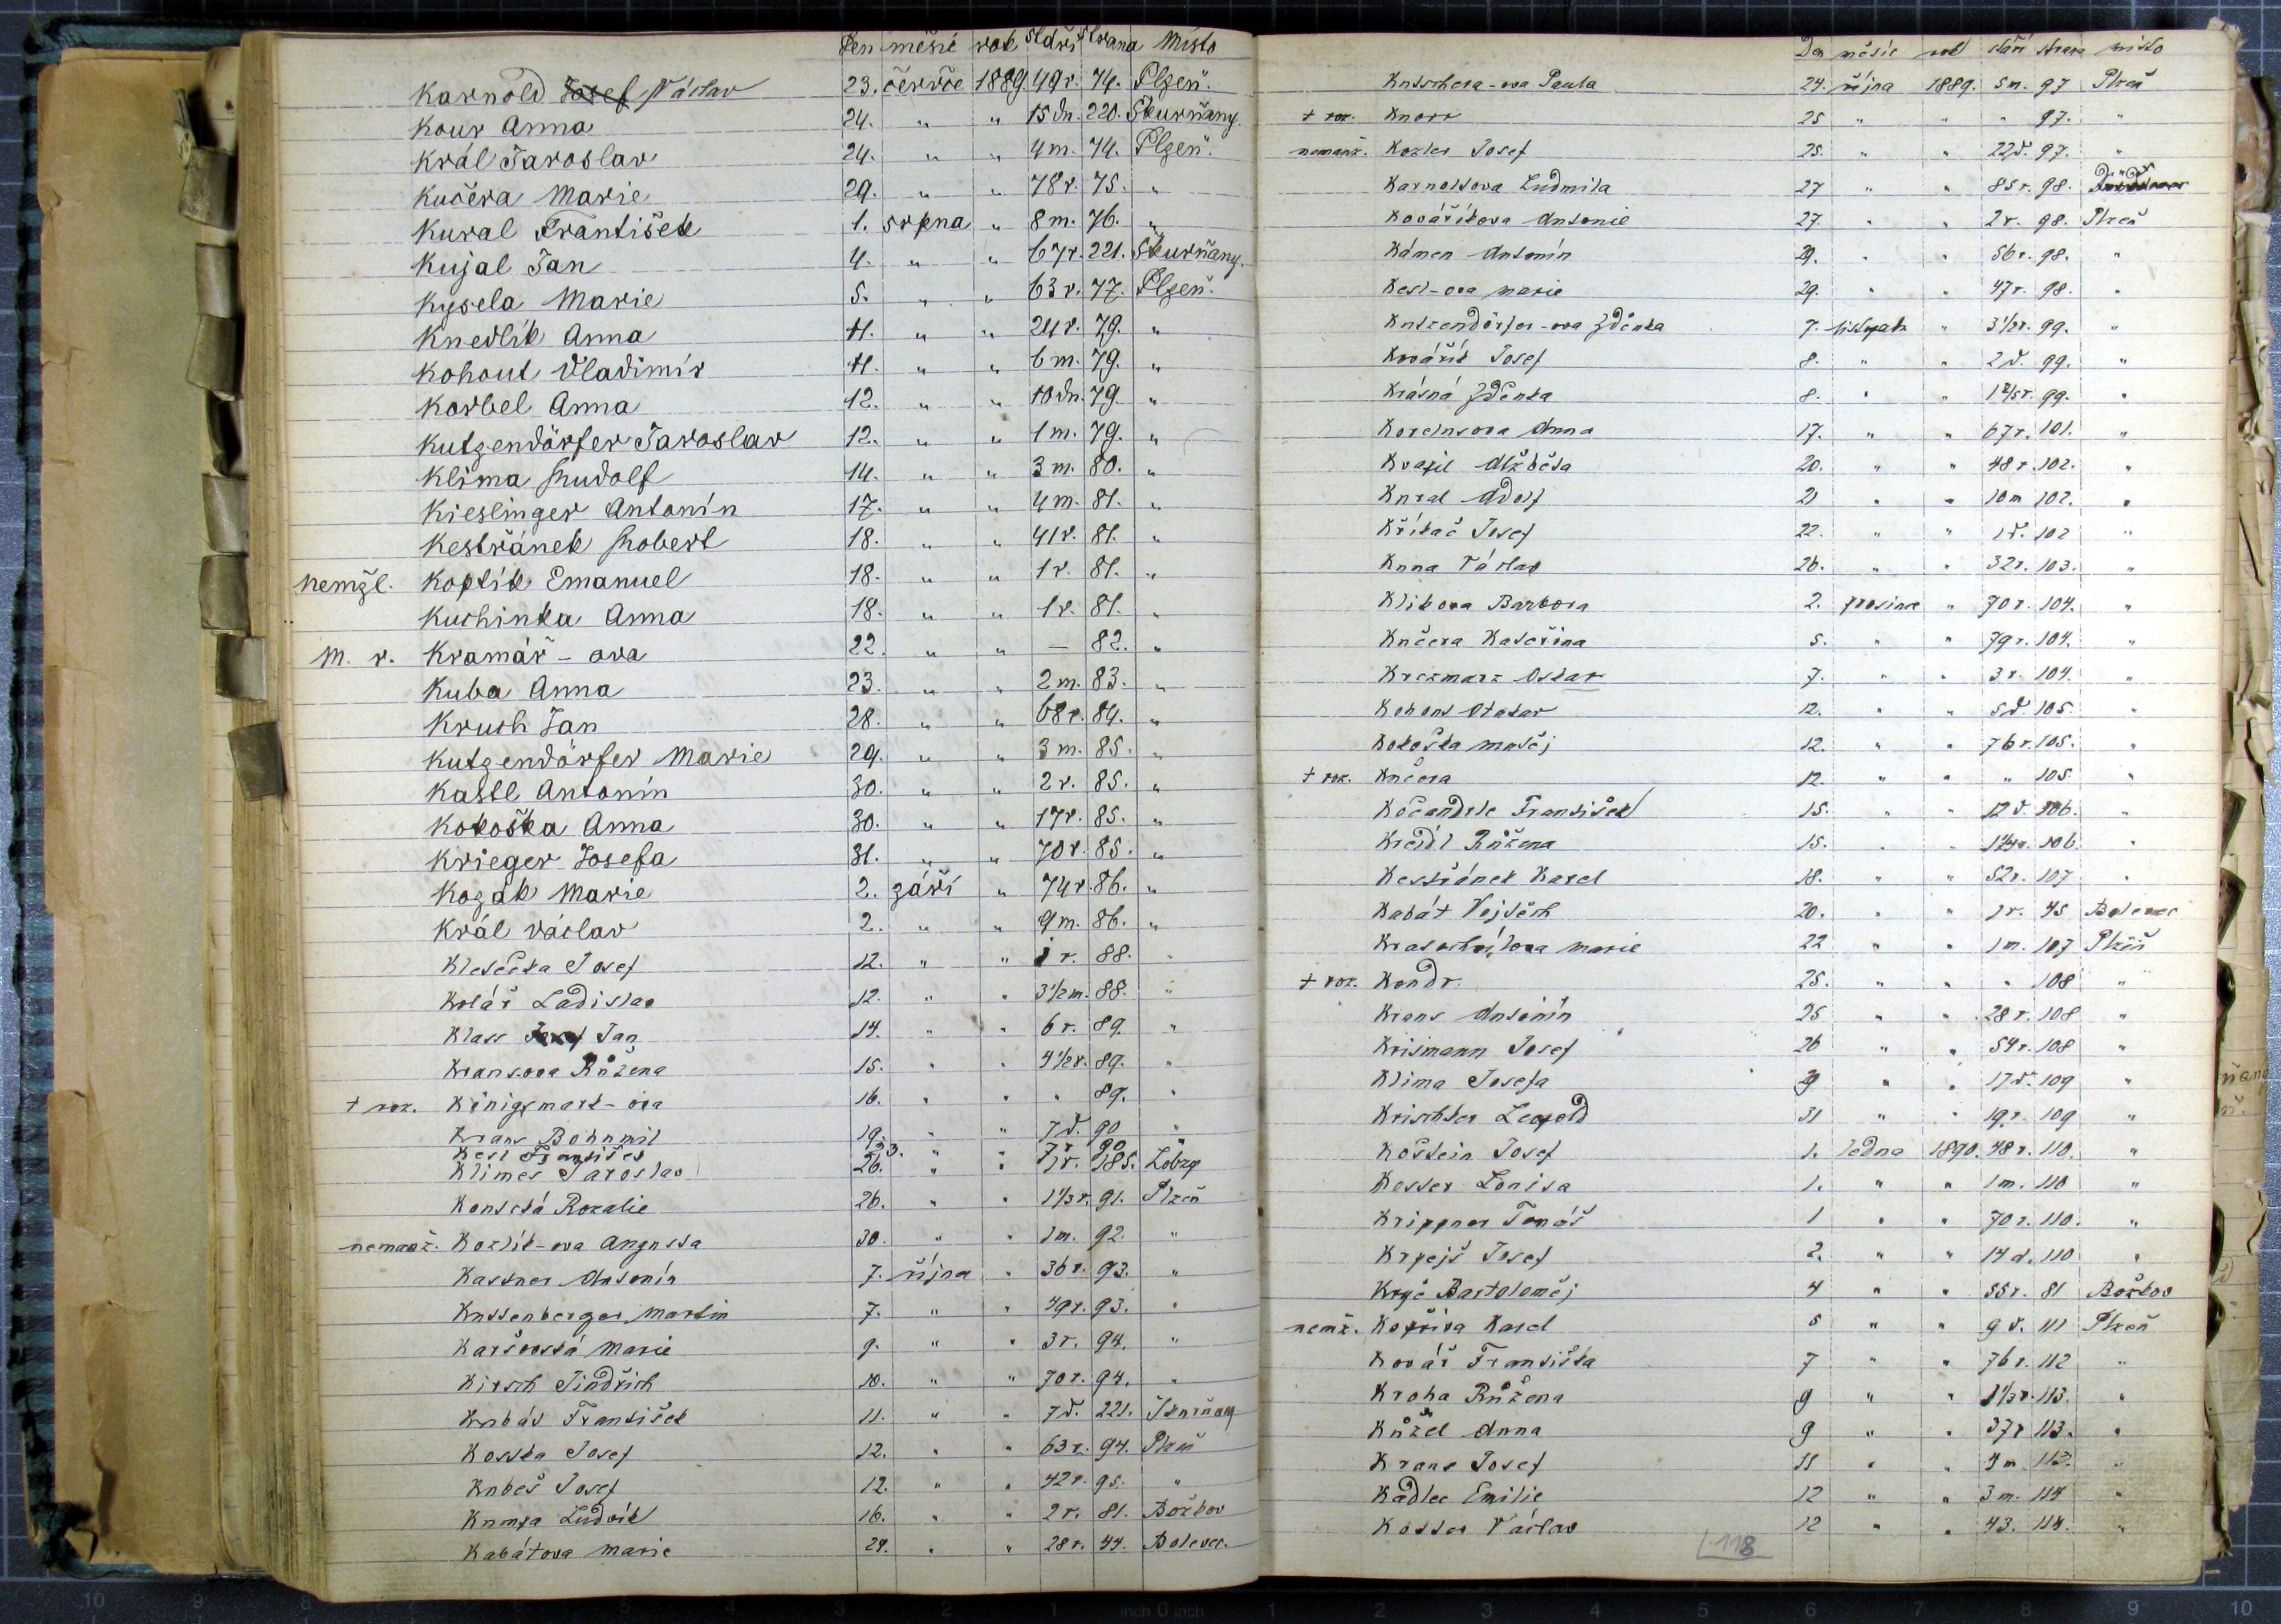 Den měsíc rok stáří strana Místo
Karnold Josef Václav 23. červce 1889. 49 r. 74. Plzeň.
Kour Anna 24. " " 15 dn. 220. Skurňany.
Král Jaroslav 24. " " 4 m. 74. Plzeň.
Kučera Marie 29. " " 78 r. 75. "
Kural František 1. srpna " 8 m. 76. "
Kujal Jan 4. " " 67 r. 221. Skurňany.
Kysela Marie 5. " " 63 r. 77. Plzeň.
Knedlík Anna 11. " " 24 r. 79. "
Kohout Vladimír 11. " " 6 m. 79. "
Korbel Anna 12. " " 10 dn. 79. "
Kutzendörfer Jaroslav 12. " " 1 m. 79. "
Klima Rudolf 14. " " 3 m. 80. "
Kieslinger Antonín 17. " " 4 m. 81. "
Kestřánek Robert 18. " " 41 r. 81. "
nemžl. Koptík Emanuel 18. " " 1 r. 81. "
Kuchinka Anna 18. " " 1 r. 81. "
m. r. Kramář - ova 22. " " — 82. "
Kuba Anna 23. " " 2 m. 83. "
Kruch Jan 28. " " 68 r. 84. "
Kutzendörfer Marie 29. " " 3 m. 85. "
Kastl Antonín 30. " " 2 r. 85. "
Kokoška Anna 30. " " 17 r. 85. "
Krieger Josefa 31. " " 70 r. 85. "
Kozák Marie 2. září " 74 r. 86. "
Král Václav 2. " " 9 m. 86. "
Klesečka Josef 12. " " 1 r. 88. "
Kolář Ladislav 12. " " 3 1/2 m. 88. "
Klass Jan 14. " " 6 r. 89. "
Krausova Růžena 15. " " 4 1/2 r. 89. "
+ roz. Königsmark - ova 16. " " " 89. "
Kraus Bohumil 19. " " 7 d. 90 "
Kesl František 23. 90
Klimes Jaroslav 26. " " 185. Lobzy
Konická Rozalie 26. " " 1 1/3 r. 91. Plzeň
nemanž. Kozlík - ova Augusta 30. " " 1 m. 92. "
Kastner Antonín 7. října " 36 r. 93. "
Kussenberger Martin 7. " " 49 r. 93. "
Karšovská Marie 9. " " 3 r. 94. "
Kirsch Jindřich 10. " " 70 r. 94. "
Kubát František 11. " " 7 d. 221. Skurňany
Kostka Josef 12. " " 63 r. 94. Plzeň
Kubeš Josef 12. " " 42 r. 95. "
Kumpa Ludvík 16. " " 2 r. 81. Božkov
Kabátova Marie 24. " " 28 r. 44. Bolevec.
Den měsíc rok stáří strana místo
Kutschera - ova Paula 24. října 1889. 5 m. 97 Plzeň
+ roz. Knorr 25 " " " 97. "
nemanž. Kozler Josef 25. " " 22 d. 97. "
Karnoltova Ludmila 27 " " 85 r. 98.
Kovaříkova Antonie 27. " " 2 r. 98. Plzeň
Kámen Antonín 29. " " 56 r. 98. "
Kesl - ova Marie 29. " " 47 r. 98. "
Kutzendörfer - ova Zdenka 7. listopadu " 3 1/2 r. 99. "
Kovářík Josef 8. " " 2 d. 99. "
Krásná Zdenka 8. " " 99. "
Korelusova Anna 17. " " 67 r. 101. "
Kvapil Alžběta 20. " " 48 r. 102. "
Kural Adolf 21 " " 10 m 102. "
Křikač Josef 22. " " 1 d. 102 "
Kuna Václav 26. " " 32 r. 103. "
Klikova Barbora 2. prosince " 70 r. 104. "
Kučera Kateřina 5. " " 79 r. 104. "
Krczmarz Oskar 7. " " 3 r. 104. "
Kohout Otakar 12. " " 5 d. 105. "
Kokoška Matěj 12. " " 76 r. 105. "
+ roz. Kučera 12. " " " 105. "
Kočandrle František 15. " " 12 d. 106. "
Kreidl Růžena 15. " " 106. "
Kestřánek Karel 18. " " 52 r. 107 "
Kabát Vojtěch 20. " " 1 r. 45 Bolevec
Marie 22 " " 1 m. 107 Plzeň
+ roz. Kondr. 25. " " " 108 "
Kraus Antonín 25 " " 28 r. 108 "
Krismann Josef 26 " " 54 r. 108 "
Klima Josefa 29 " " 17 d. 109 "
Krischker Leopold 31 " " 19 r. 109 "
Koštein Josef 1. ledna 1890. 48 r. 110. "
Kosser Louisa 1. " " 1 m. 110 "
Krippner Tomáš 1 " " 70 r. 110. "
Krpejš Josef 2. " " 14 d. 110 "
Krýč Bartoloměj 4 " " 55 r. 81 Božkov
nemž. Kopřiva Karel 5 " " 9 d. 111 Plzeň
Kovář Františka 7 " " 76 r. 112 "
Kroha Růžena 9 " " 1 1/3 r. 113. "
Kůzel Anna 9 " " 37 r 113. "
Kraus Josef 11 " " 4 m. 113. "
Kadlec Emilie 12 " " 3 m. 114 "
Kosser Václav 12 " " 43. 114. "
118